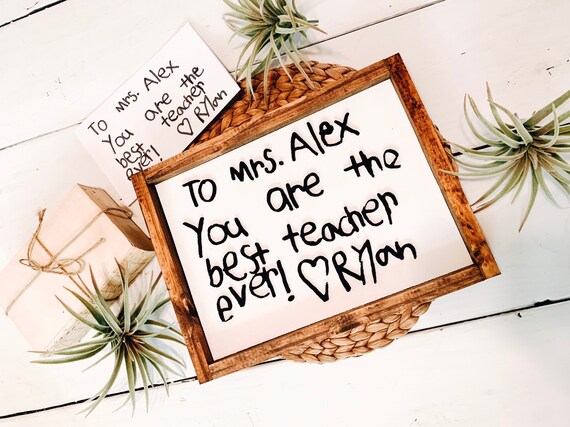 To Mrs. Alex
You are the
best teacher
ever! ♡ Rylan
To mrs. Alex
You are the
best teacher
ever! ♡ Rylan